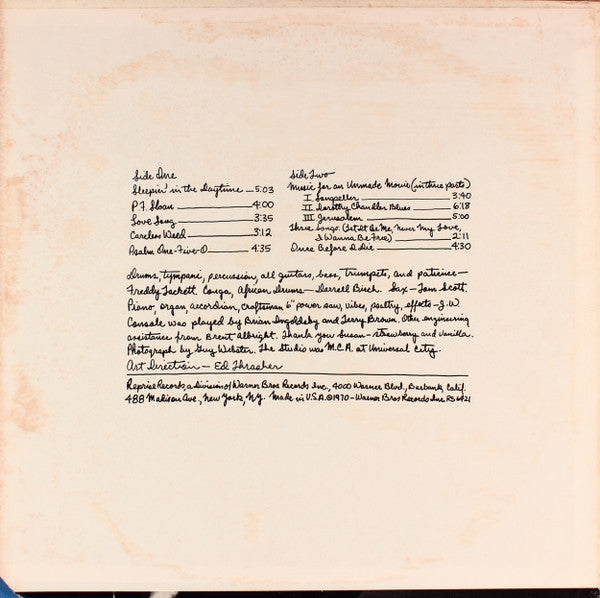 Side One
Sleepin' in the Daytime 5:03
P.F. Sloan 4:00
Love Song 3:35
Careless Weed 3:12
Psalm One-Five-O 4:35
Side Two
Music for an Unmade Movie (in three parts)
I Songseller 3:40
II Dorothy Chandler Blues 6:18
III Jerusalem 5:00
Three Songs: (Let It Be Me, Never My Love,
I Wanna Be Free) 2:11
Once Before I Die 4:30
Drums, tympani, percussion, all guitars, bass, trumpets, and patience—
Freddy Tackett. Conga, African Drums— Darrell Birch. Sax— Tom Scott.
Piano, organ, accordian, craftsman 6" power saw, vibes, poetry, effects— J.W.
Console was played by Brian Ingoldsby and Terry Brown. Other engineering
assistance from Brent Albright. Thank you Susan— strawberry and vanilla.
Photograph by Guy Webster. The Studio was M.C.A. at Universal City.
Art Direction— Ed Thrasher
Reprise Records, a division of Warner Bros Records Inc., 4000 Warner Blvd., Burbank, Calif.
488 Madison Ave., New York, N.Y. Made in U.S.A. ℗1970— Warner Bros Records Inc. RS 6421